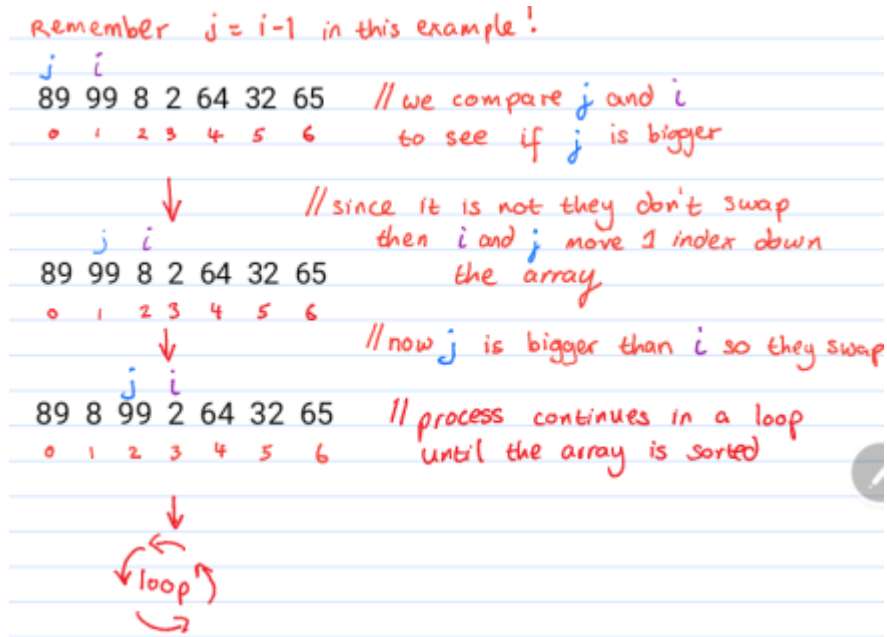 Remember j = i-1 in this example!
j i
89 99 8 2 64 32 65 // we compare j and i
0 1 2 3 4 5 6 to see if j is bigger
// since it is not they don't swap
j i then i and j move 1 index down
89 99 8 2 64 32 65 the array
0 1 2 3 4 5 6
// now j is bigger than i so they swap
j i
89 8 99 2 64 32 65 // process continues in a loop
0 1 2 3 4 5 6 until the array is sorted
loop